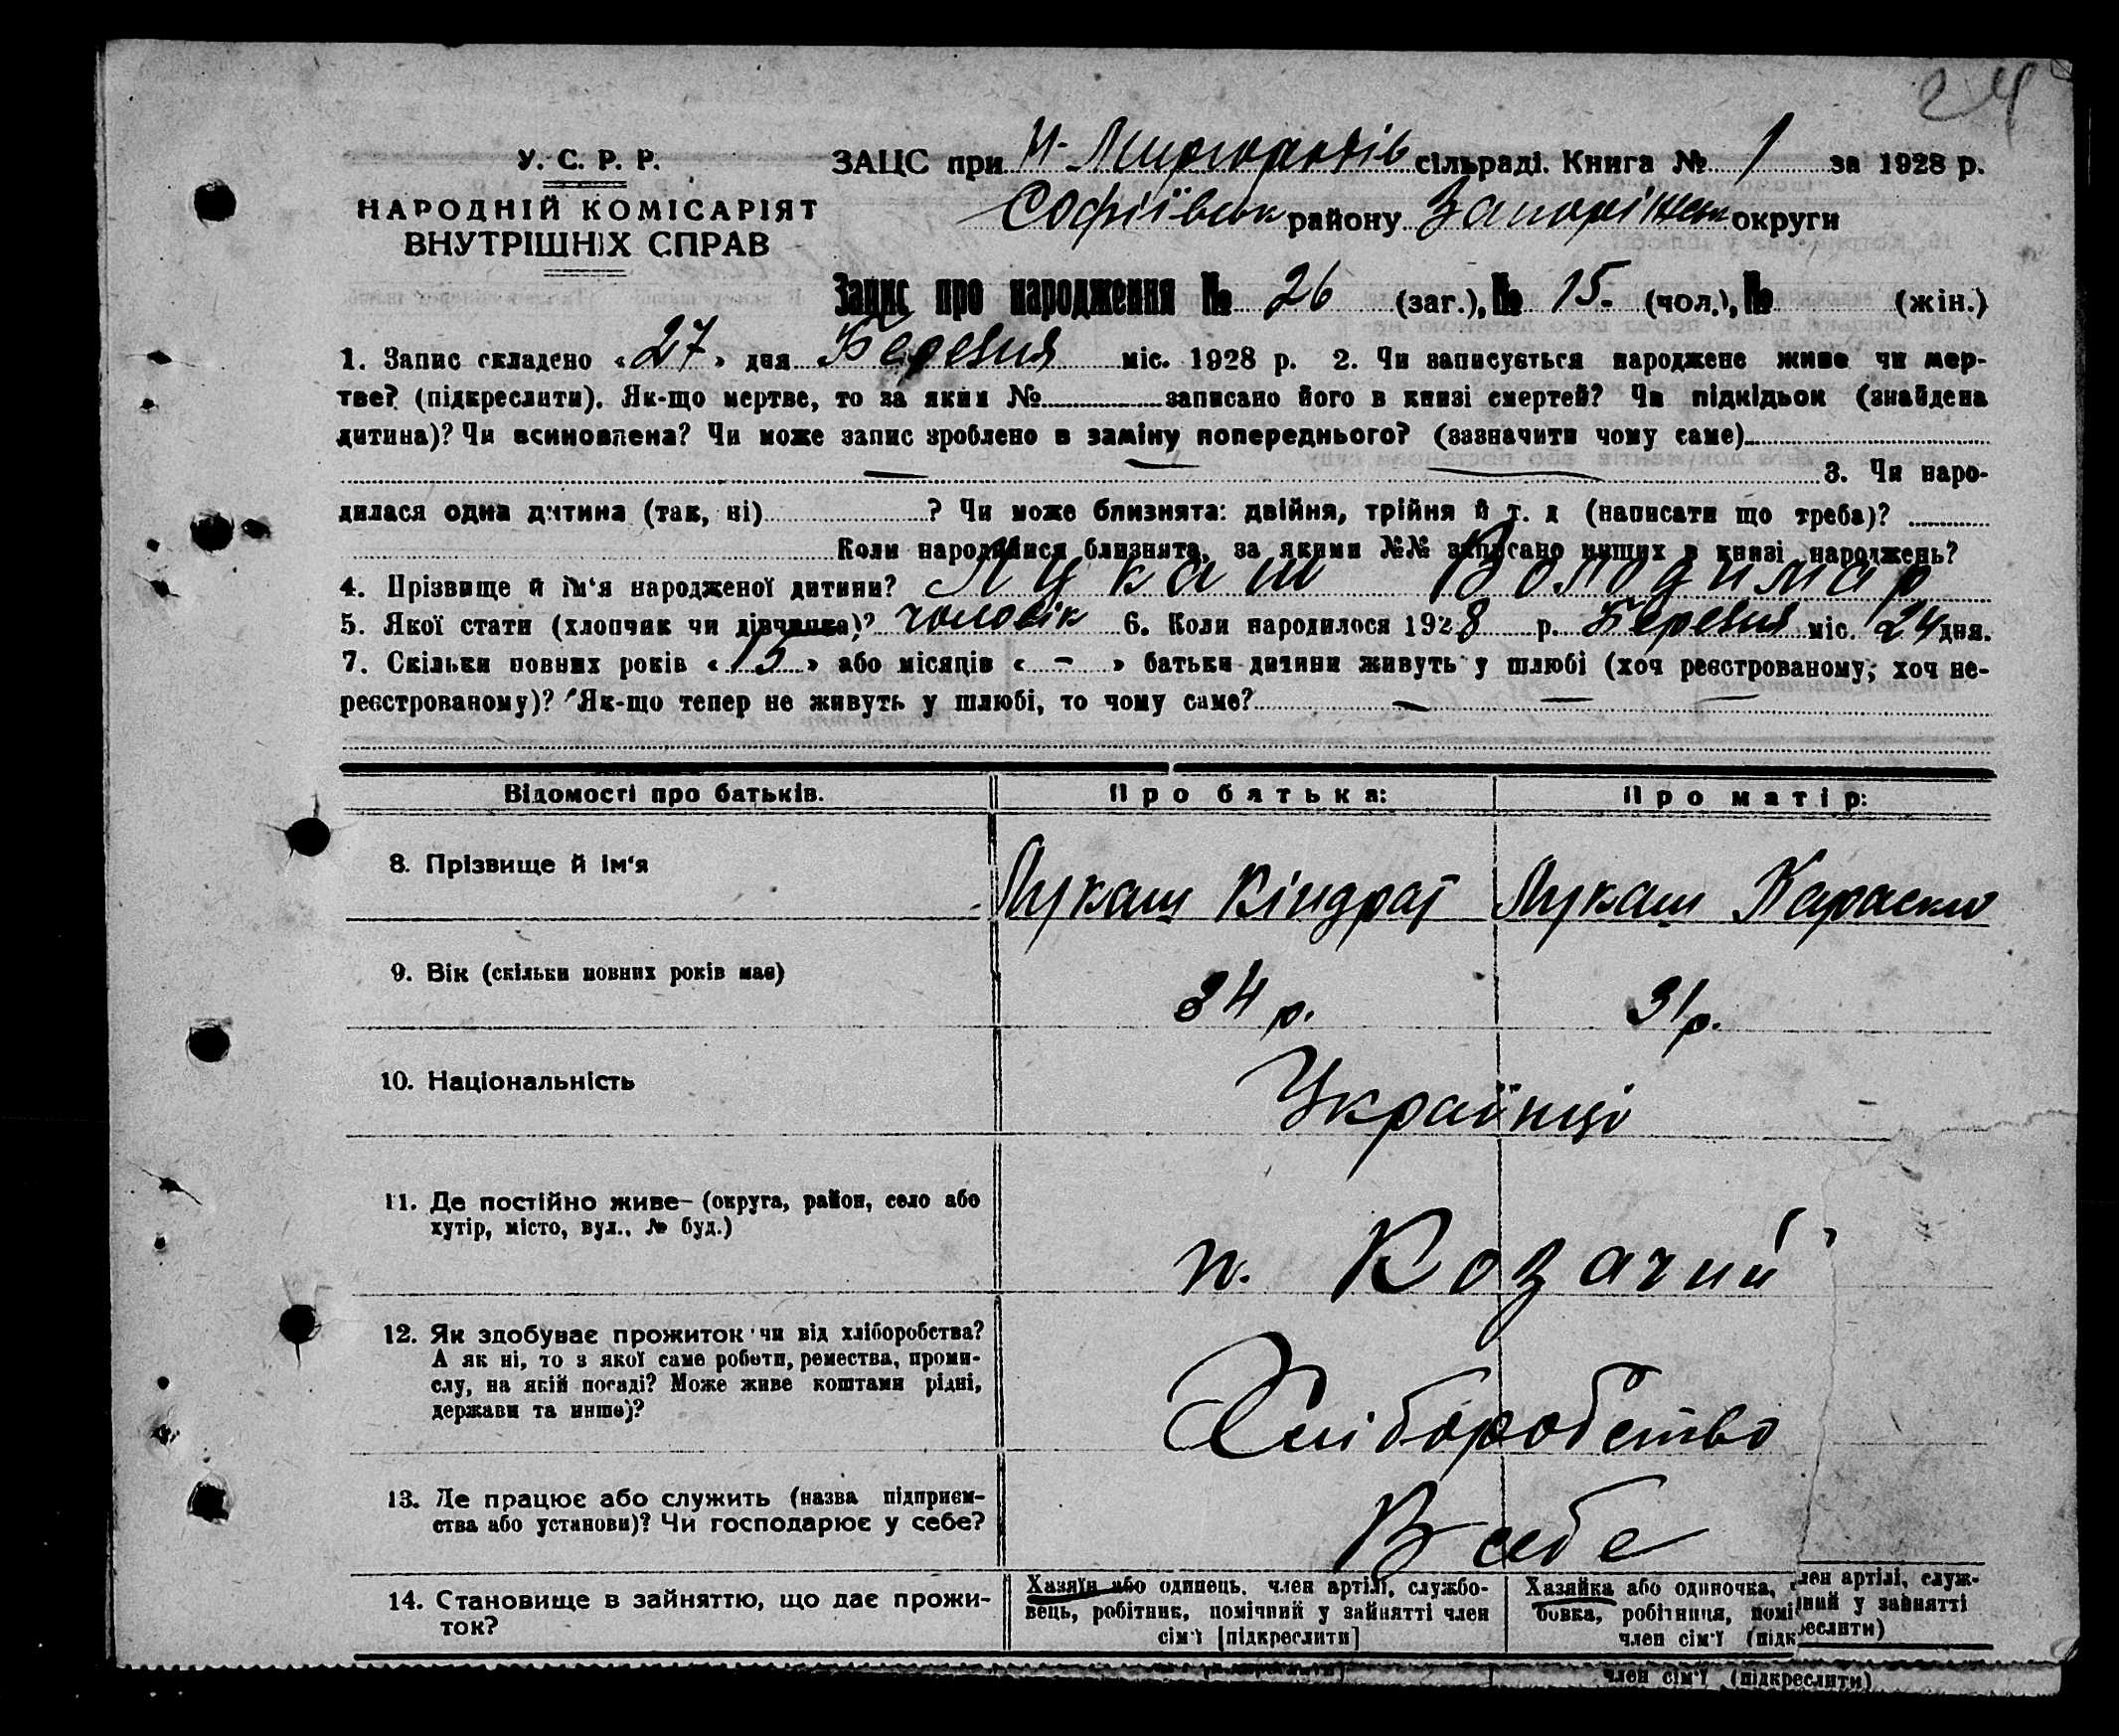 24
У. С. Р. Р.
НАРОДНІЙ КОМІСАРІЯТ
ВНУТРІШНІХ СПРАВ
ЗАЦС при Н-Миргородів сільраді. Книга № 1 за 1928 р.
Софіївськ району Запоріжськ округи
Запис про народження № 26 (заг.), № 15. (чол.), № (жін.)
1. Запис складено «27» дня Березня міс. 1928 р. 2. Чи записується народжене живе чи мер-
тве? (підкреслити). Як-що мертве, то за яким № записано його в книзі смертей? Чи підкідьок (знайдена
дитина)? Чи всиновлена? Чи може запис зроблено в заміну попереднього? (зазначити чому саме)
3. Чи наро-
дилася одна дитина (так, ні) ? Чи може близнята: двійня, трійня й т. д (написати що треба)?
Коли народилися близнята, за якими №№ записано инших в книзі народжень?
4. Прізвище й ім'я народженої дитини? Лукаш Володимар
5. Якої стати (хлопчик чи дівчинка)? чоловік 6. Коли народилося 1928 р. Березня міс. 24 дня.
7. Скільки повних років «15» або місяців « - » батьки дитини живуть у шлюбі (хоч реєстрованому, хоч не-
реєстрованому)? Як-що тепер не живуть у шлюбі, то чому саме?
Відомості про батьків. Про батька: Про матір:
8. Прізвище й ім'я Лукаш Кіндрат Лукаш
9. Вік (скільки повних років має) 34 р. 31 р.
10. Національність Українці
11. Де постійно живе— (округа, район, село або
хутір, місто, вул., № буд.)
п. Козачий
12. Як здобуває прожиток чи від хліборобства?
А як ні, то з якої саме роботи, ремества, проми-
слу, на якій посаді? Може живе коштами рідні,
держави та инше)?
Хліборобство
13. Де працює або служить (назва підприєм-
ства або установи)? Чи господарює у себе?
В себе
14. Становище в зайняттю, що дає прожи-
ток?
Хазяїн або одинець, член артілі, службо-
вець, робітник, помічний у зайнятті член
сім'ї [підкреслити]
Хазяйка або одиночка, член артілі, служ-
бовка, робітниця, помічний у зайнятті
член сім'ї (підкреслити)
член сім'ї (підкреслити)